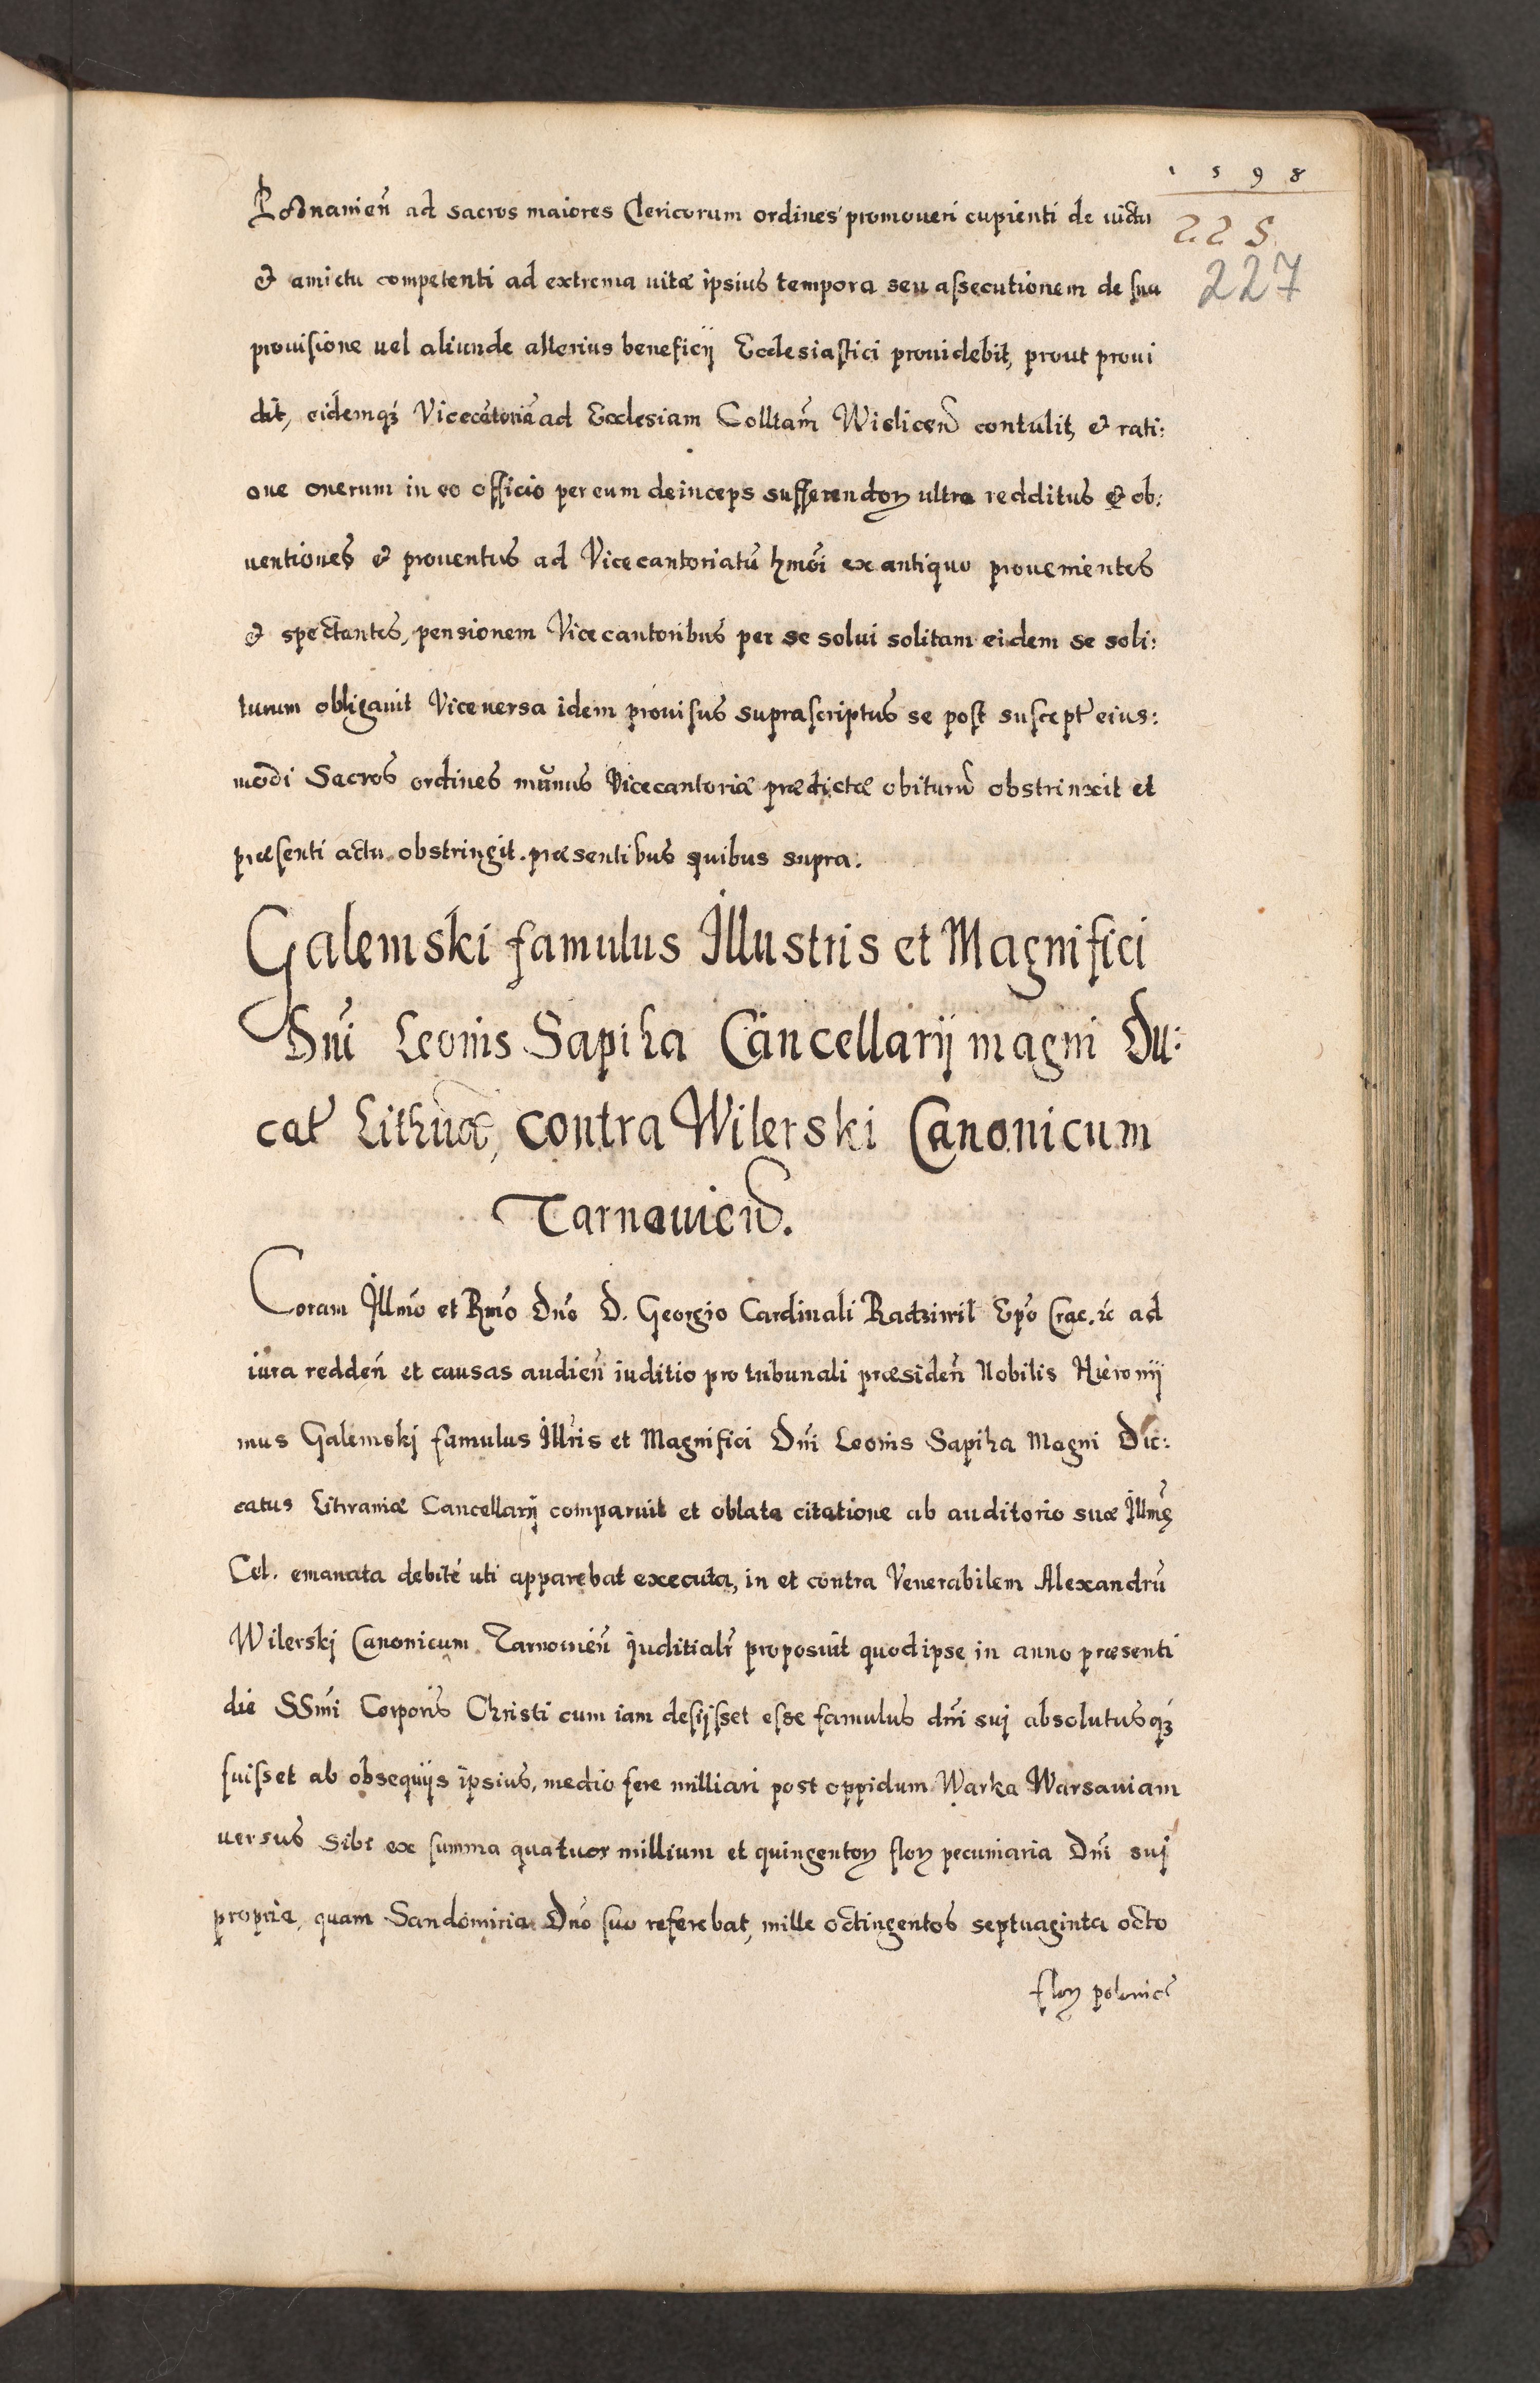 1598
225
227
Posnanien̄ ad sacros maiores Clericorum ordines promoueri cupienti de uictu
& amictu competenti ad extrema uitæ ipsius tempora seu assecutionem de sua
prouisione uel aliunde alterius beneficij Ecclesiastici prouidebit, prout proui
dit, eidemqꝫ Vicecãtoriã ad Ecclesiam Colltam̃ Wislicen̄ contulit, & rati:
one onerum in eo officio per eum deinceps sufferendoꝝ ultra redditus & ob:
uentiones & prouentus ad Vicecantoriatũ hmõi ex antiquo prouenientes
& spectantes, pensionem Vicecantoribus per se solui solitam eidem se solu:
turum obligauit Vice uersa idem prouisus suprascriptus se post suscept̃ eius:
modi Sacros ordines munus Vicecantoriæ prædictæ obiturũ obstrinxit et
præsenti actu obstringit. præsentibus quibus supra.
Galemski famulus Illustris et Magnifici
Dñi Leonis Sapiha Cancellarij magni Du:
cat̃ Lithuã͛æ, contra Wilerski Canonicum
Tarnauien̄.
Coram Illmõ et Rmõ Dnõ D. Georgio Cardinali Radziwil Epõ Crac. ꝛc ad
iura redden̄ et causas audien̄ iuditio pro tribunali præsiden̄ Nobilis Hieronij
mus Galemskj famulus Illr̃is et Magnifici Dñi Leonis Sapiha Magni Du:
catus Lithvaniæ Cancellarij comparuit et oblata citatione ab auditorio suæ Illmę̃
Cel. emanata debitè uti apparebat executa, in et contra Venerabilem Alexandrũ
Wilerskj Canonicum Tarnouien̄ iuditialr̃ proposuit quod ipse in anno præsenti
die SSmĩ Corporis Christi cum iam desijsset esse famulus dñi suj absolutusqꝫ
fuisset ab obsequijs ipsius, medio fere milliari post oppidum Warka Warsauiam
uersus sibi ex summa quatuor millium et quingentoꝝ floꝝ pecuniaria Dñi suj
propria, quam Sandomiria Dnõ suo referebat, mille octingentos septuaginta octo
floꝝ polonic̃